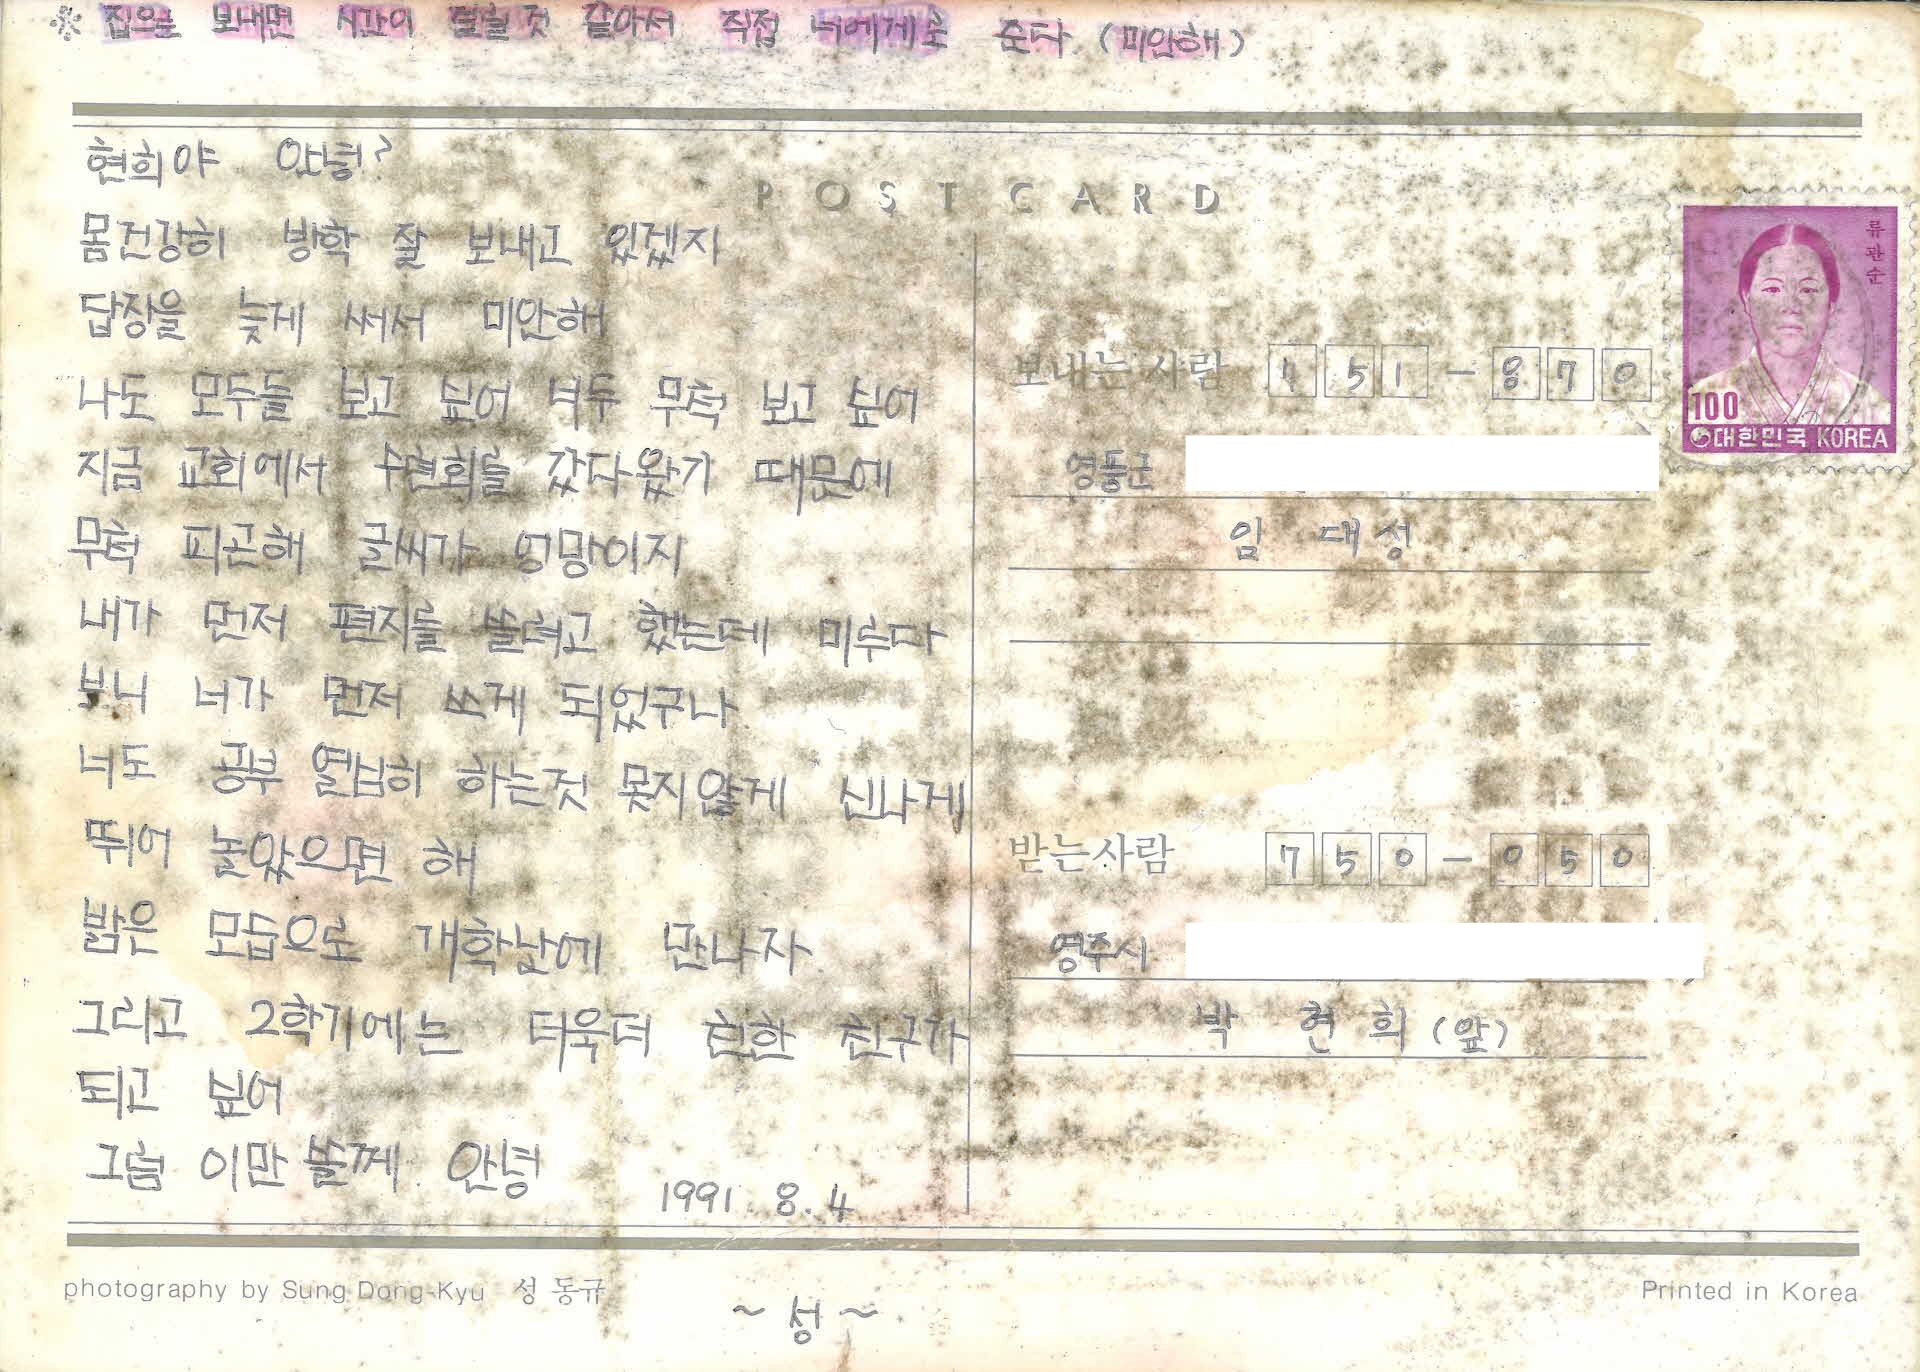 ※ 집으로 보내면 시간이 덜될것 같아서 직접 너에게로 준다 (미안해)
현희야 안녕?
POST CARD
몸건강히 방학 잘 보내고 있겠지
답장을 늦게 써서 미안해
나도 모두들 보고 싶어 너두 무척 보고 싶어
지금 교회에서 수련회를 갔다왔기 때문에
무척 피곤해 글씨가 엉망이지
내가 먼저 편지를 쓸려고 했는데 미루다
보니 너가 먼저 쓰게 되었구나
너도 공부 열심히 하는것 못지않게 신나게
뛰어 놀았으면 해
밝은 모습으로 개학날에 만나자
그리고 2학기에는 더욱더 친한 친구가
되고 싶어
그럼 이만 쓸께 안녕
1991. 8. 4
류관순
100
대한민국 KOREA
보내는 사람 151-870
영동군
임 대성
받는사람 750-050
영주시
박 현 희 (앞)
photography by Sung Dong-Kyu 성 동규
Printed in Korea
~ 성 ~